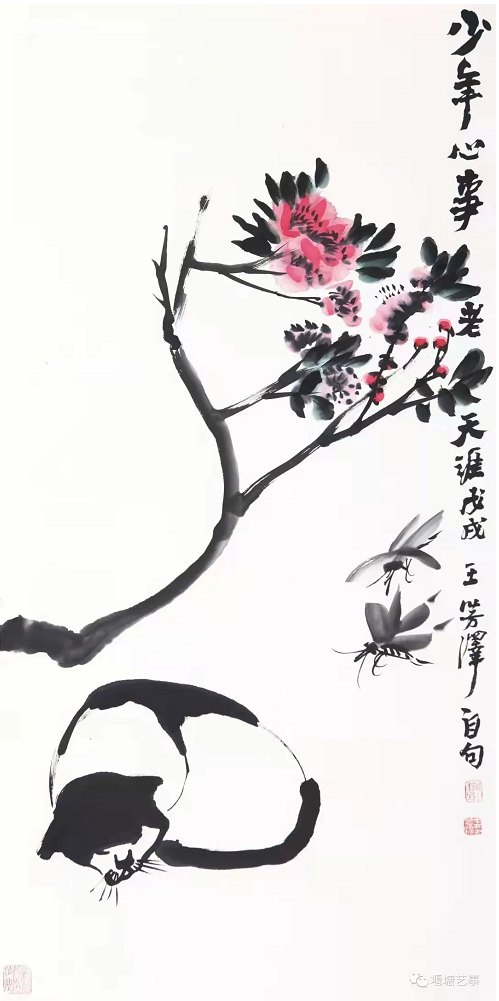 少年心事老天涯戊戌王芳泽自句
堰塘艺事